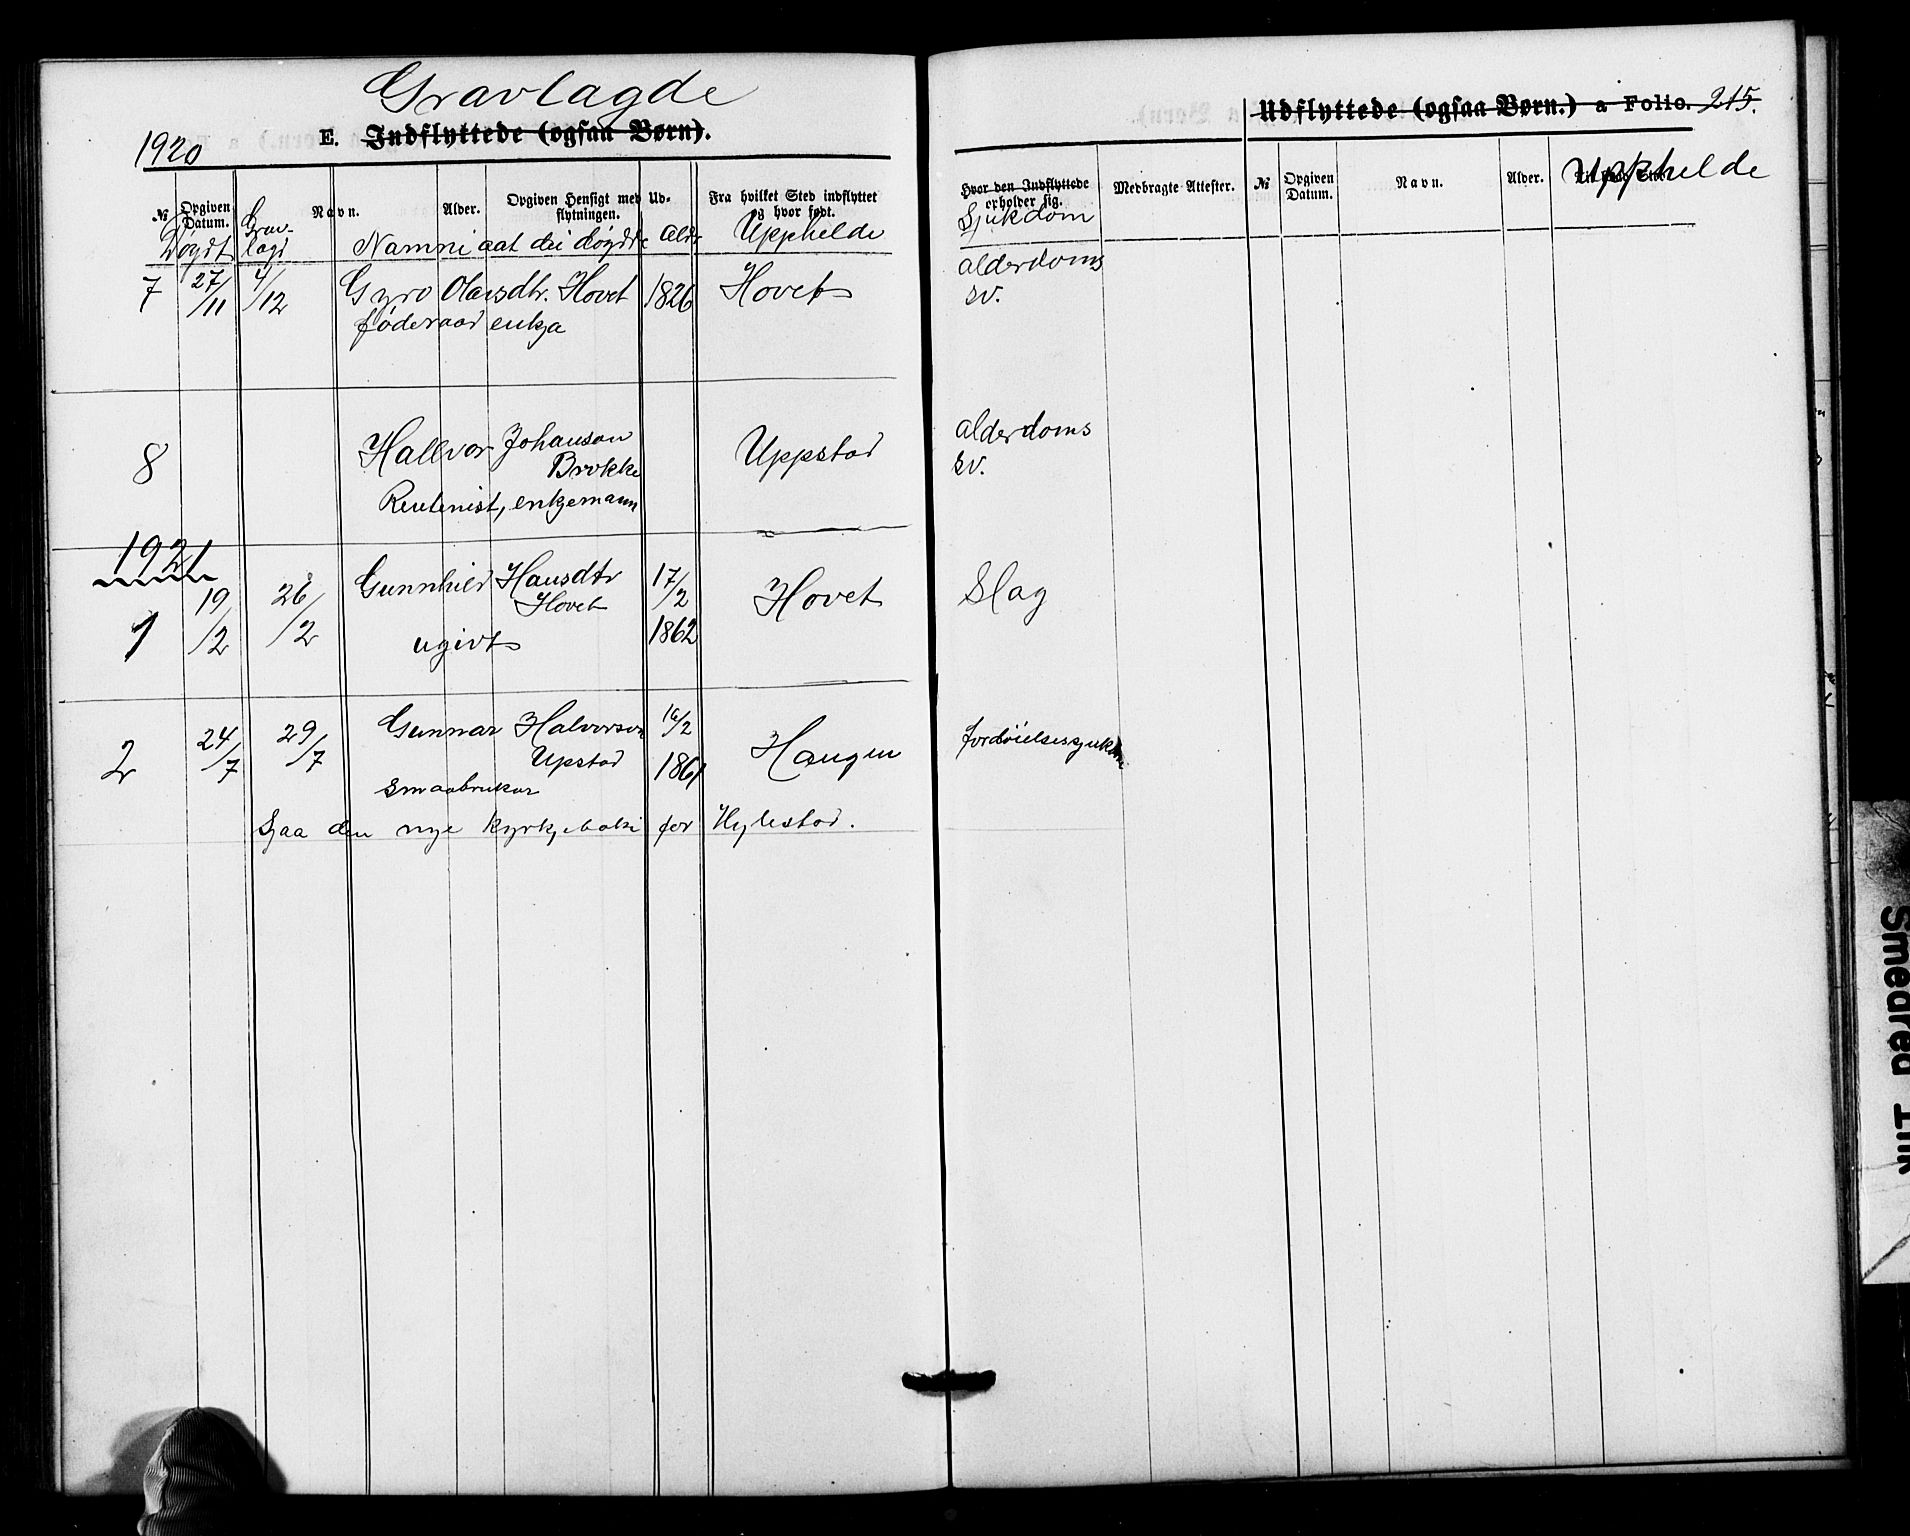 Gravlagde
1920 E. Indflyttede (ogsaa Børn).
№ Opgiven Datum. Navn. Alder. Opgiven Hensigt med Udflytningen. Fra hvilket Sted indflyttet og hvor født.
Døydt Gravlagd Namni aat dei døydde Aldr Upphelde
7 27/11 4/12 Gyro Olavsdtr. Hovet 1826 Hovet
føderaad enkja
8 Hallvor Johanson Uppstad
Brokke
Rentenist, enkjemann
1921
1 19/2 26/2 Gunnhild Hansdtr 17/2 Hovet
Hovet
ugivt 1862
2 24/7 29/7 Gunnar Halvorson 16/2 Haugen
Upstad 1861
smaabrukar
Sjaa den nye kyrkjeboki for Hylestad.
Udflyttede (ogsaa Børn.) a Folio. 215.
Hvor den Indflyttede opholder sig. Medbragte Attester. № Opgiven Datum. Navn. Alder. Upphelde
Sjukdom
alderdoms
sv.
alderdoms
sv.
Slag
fordøielsessjukdom
Smeared Ink